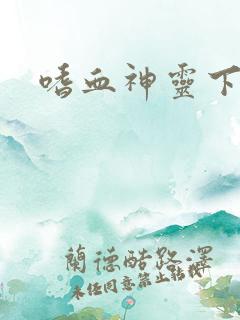 嗜血神靈下
蘭德酷路澤
未经同意禁止转载